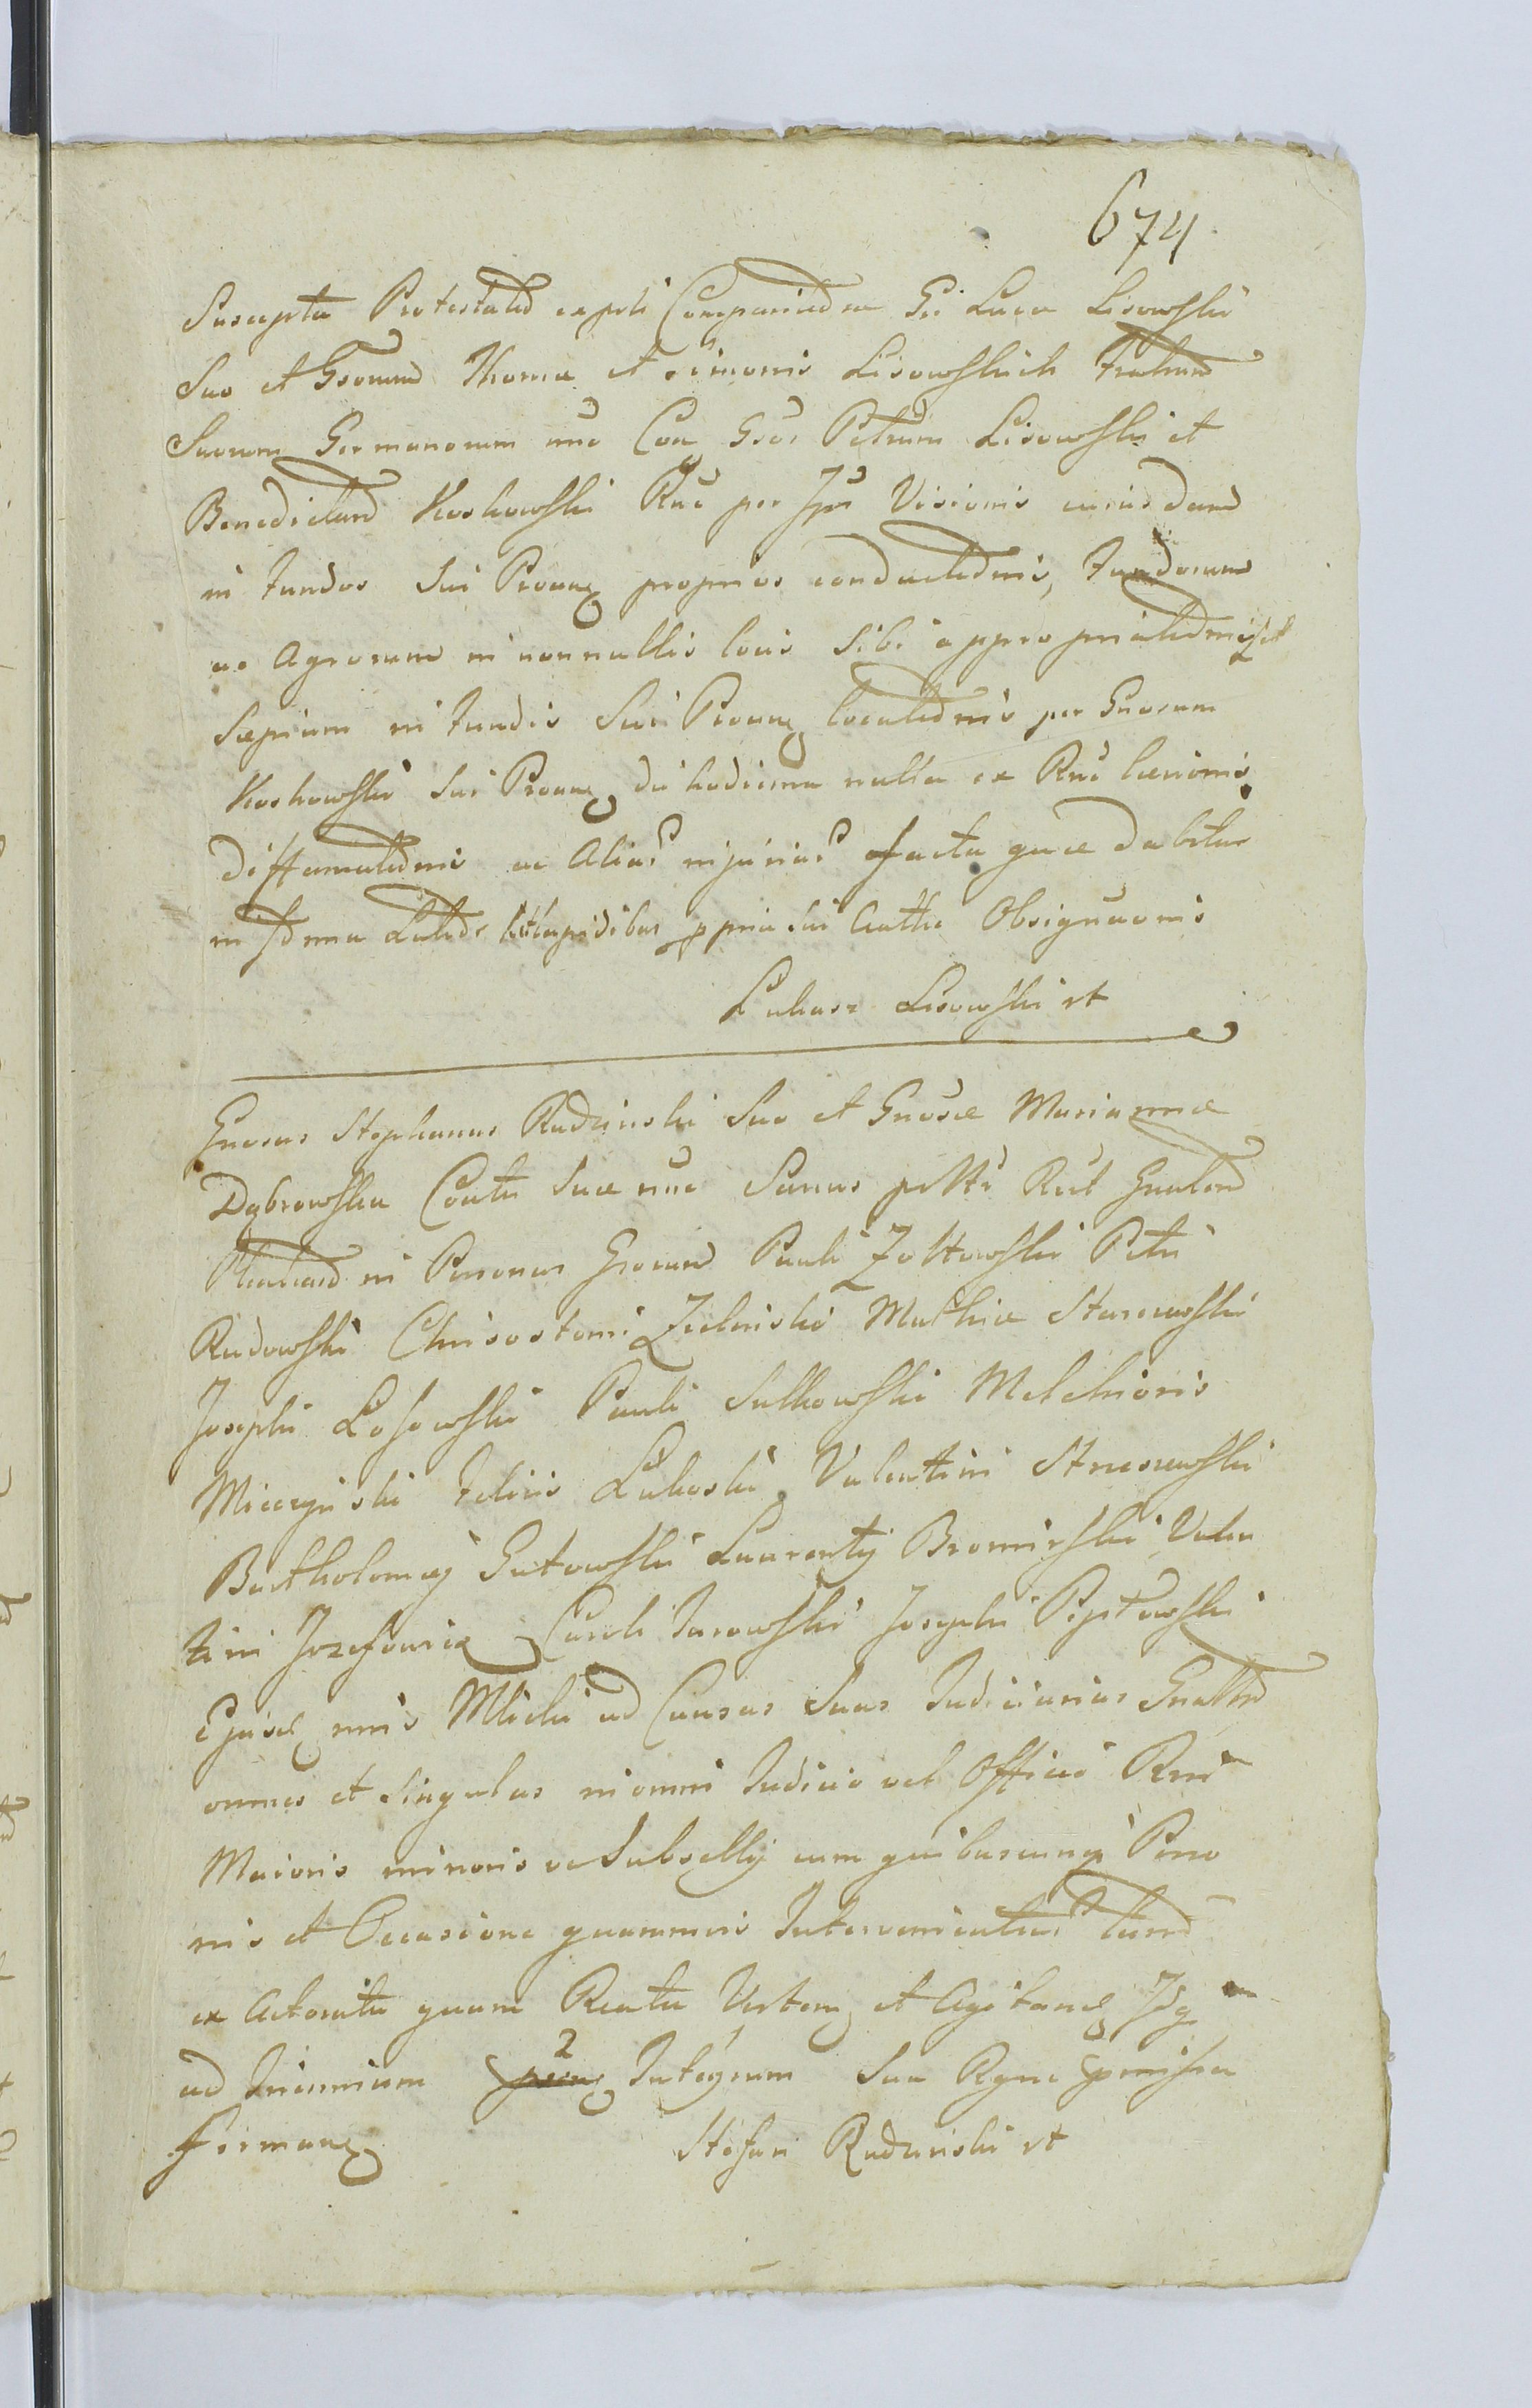 674
Suscepta Protestatio ex parte Comparitionem Gsi Lucae Lisowski
Suo et Gsorum Thomae et Simonis Lisowskich Fratrum
Suorum Germanorum nnc Con Gsos Petrum Lisowski et
Benedictum Koskowski Rne per Ipos Visionis cuiusdam
in Fundos Sui Proten proprios conductionis, Fundorum
ac Agrorum in nonnullis locis Sibi appropriationis, et
Sepium in Fundis Sui Proten locationis per Gnosum
Koskowski Sui Proten die hodierna nulla ex Rne laesionis
Diffamationis ac Alias injurias facta quae dabitur
in forma Latiori
ppria Sui Obsignaonis
Łukasz Lisowski rt
Gnosus Stephanus Rudzinski Suo et Gnosae Mariannae
Dąbrowska Contis Suae nne Sanus Gnalem
in Personas Gsorum Pauli Zołtowski Petri
Rudowski Chrisostomi Zielinski Mathiae Starczewski
Josephi Łosowski Pauli Sulkowski Melchioris
Miecznski Felicis Łukoski Valentini
Bartholomaej Gutowski Laurentij Bromirski Valen
tini Jozefowicz Caroli Jarowski Josephi
Ejusd nnis Mlicki ad Causas Suas Judiciarias Gnalem
omnes et Singulas in omni Judicio vel Officio Rni
Maioris minoris ve Subsellij cum quibuscunq Perso
nis et Occasione quarumvis Intervenientium tam
ex Actoratu quam Reatu Verten et Agitand Idq
ad Triennium Integrum Sua Rgne pmissa
firman
Stefan Rudzinski rt